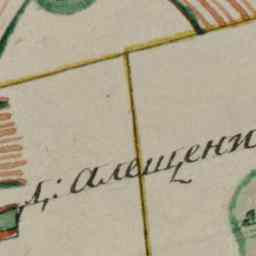 д: Алещени